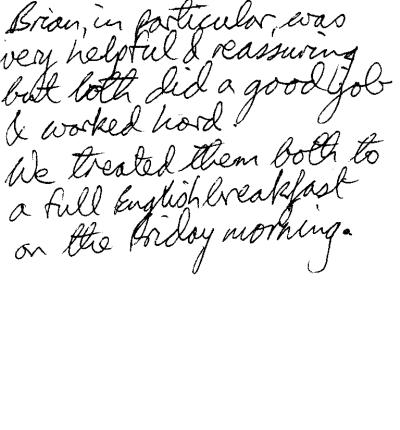 Brian, in particular, was
very helpful & reassuring
but both did a good job
& worked hard.
We treated them both to
a full English breakfast
on the Friday morning.